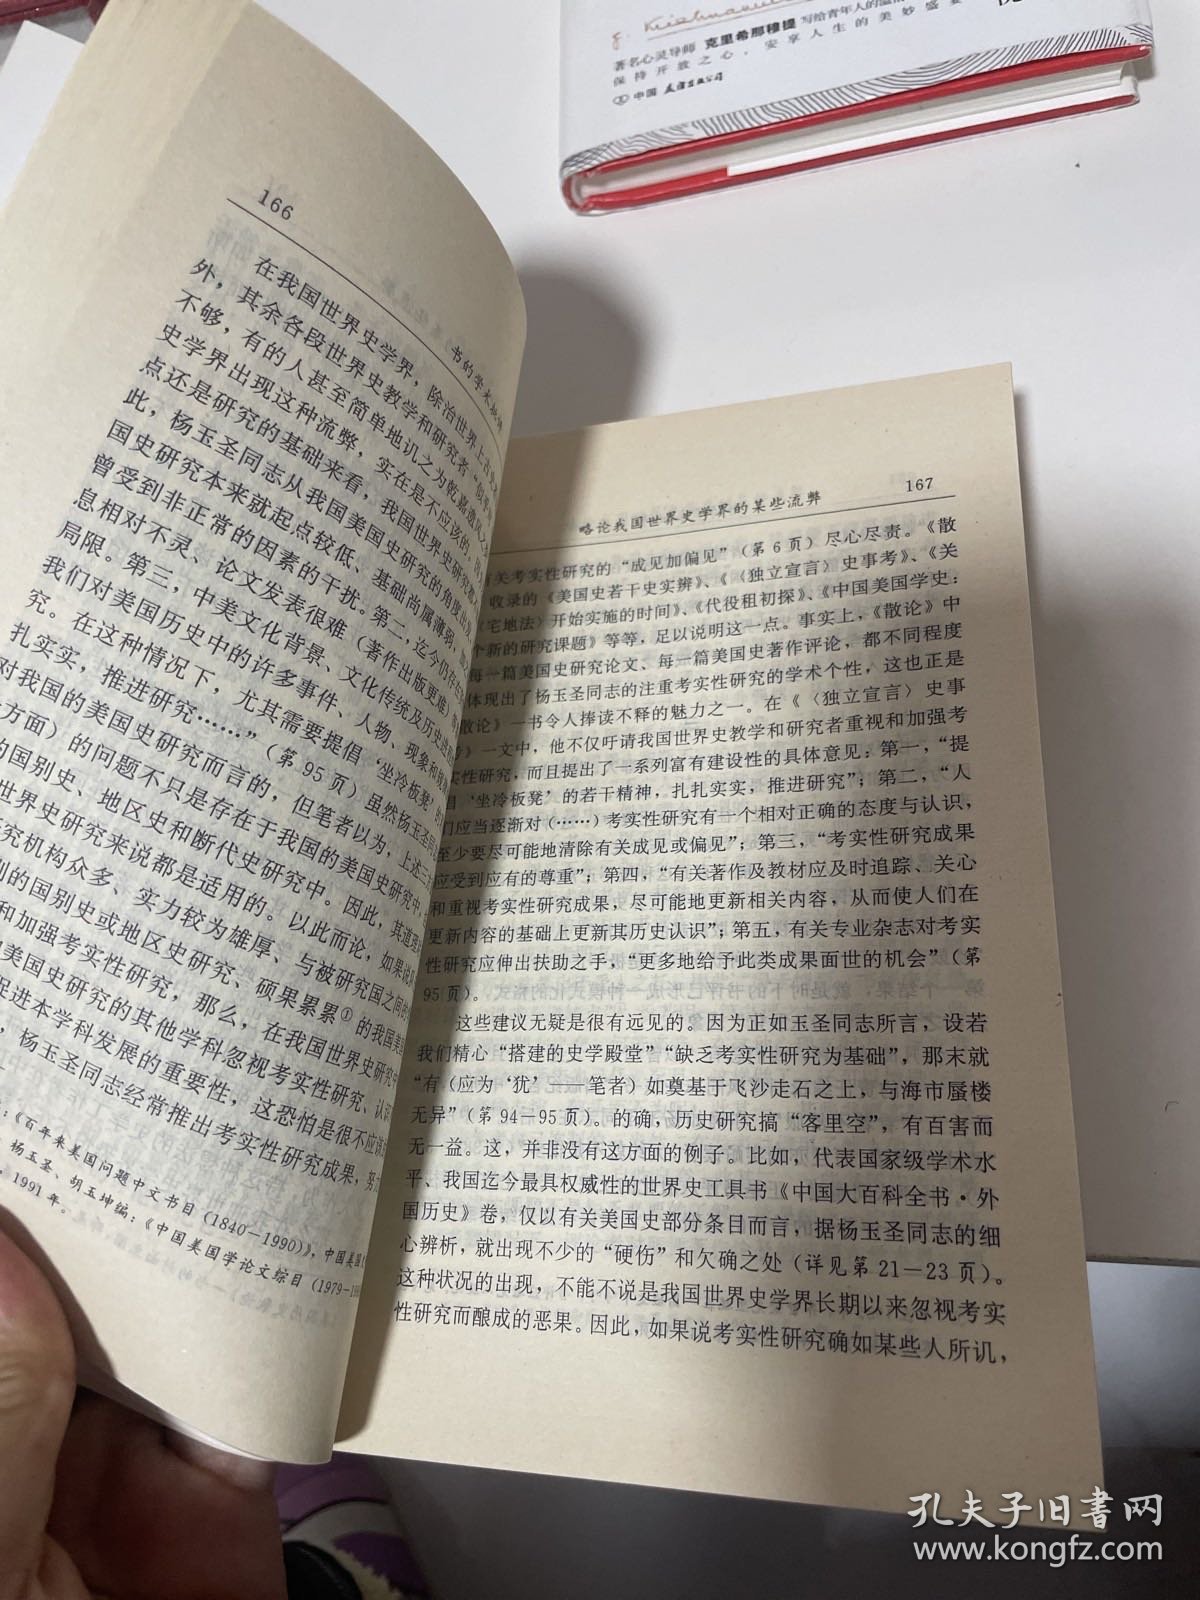 著名心灵导师 克里希那穆提 写给青年人的温
保持开放之心，安享人生的美妙盛
中国友谊出版公司
166
书的学术
在我国世界史学界，除治世界上古
外，其余各段世界史教学和研究者“似
不够，有的人甚至简单地讥之为乾嘉遗风之
史学界出现这种流弊，实在是不应该的，因
点还是研究的基础来看，我国世界史研究
此，杨玉圣同志从我国美国史研究的角度出发
国史研究本来就起点较低、基础尚属薄弱，
曾受到非正常的因素的干扰。第二，迄今仍存在
息相对不灵、论文发表很难（著作出版更难）
局限。第三，中美文化背景、文化传统及历史
我们对美国历史中的许多事件、人物、现象和
究。在这种情况下，尤其需要提倡‘坐冷板凳’的
扎实实，推进研究……”（第95页）虽然杨玉圣同
对我国的美国史研究而言的，但笔者以为，上述三
方面）的问题不只是存在于我国的美国史研究中，
的国别史、地区史和断代史研究中。因此，其道理
世界史研究来说都是适用的。以此而论，如果说
究机构众多、实力较为雄厚、与被研究国之间的
别的国别史或地区史研究、硕果累累①的我国美国
和加强考实性研究，那么，在我国世界史研究中
美国史研究的其他学科忽视考实性研究、认
促进本学科发展的重要性，这恐怕是很不应该的
，杨玉圣同志经常推出考实性研究成果，努
：《百年来美国问题中文书目（1840—1990）》，中国美国
杨玉圣、胡玉坤编：《中国美国学论文综目（1979—19
1991年。
略论我国世界史学界的某些流弊 167
有关考实性研究的“成见加偏见”（第6页）尽心尽责。《散
收录的《美国史若干史实辨》、《〈独立宣言〉史事考》、《关
《宅地法》开始实施的时间》、《代役租初探》、《中国美国学史：
个新的研究课题》等等，足以说明这一点。事实上，《散论》中
每一篇美国史研究论文、每一篇美国史著作评论，都不同程度
体现出了杨玉圣同志的注重考实性研究的学术个性，这也正是
散论》一书令人捧读不释的魅力之一。在《〈独立宣言〉史事
考》一文中，他不仅吁请我国世界史教学和研究者重视和加强考
实性研究，而且提出了一系列富有建设性的具体意见：第一，“提
倡‘坐冷板凳’的若干精神，扎扎实实，推进研究”；第二，“人
们应当逐渐对（……）考实性研究有一个相对正确的态度与认识，
至少要尽可能地清除有关成见或偏见”；第三，“考实性研究成果
应受到应有的尊重”；第四，“有关著作及教材应及时追踪、关心
和重视考实性研究成果，尽可能地更新相关内容，从而使人们在
更新内容的基础上更新其历史认识”；第五，有关专业杂志对考实
性研究应伸出扶助之手，“更多地给予此类成果面世的机会”（第
95页）。
这些建议无疑是很有远见的。因为正如玉圣同志所言，设若
我们精心“搭建的史学殿堂”“缺乏考实性研究为基础”，那末就
“有（应为‘犹’——笔者）如奠基于飞沙走石之上，与海市蜃楼
无异”（第94—95页）。的确，历史研究搞“客里空”，有百害而
无一益。这，并非没有这方面的例子。比如，代表国家级学术水
平、我国迄今最具权威性的世界史工具书《中国大百科全书·外
国历史》卷，仅以有关美国史部分条目而言，据杨玉圣同志的细
心辨析，就出现不少的“硬伤”和欠确之处（详见第21—23页）。
这种状况的出现，不能不说是我国世界史学界长期以来忽视考实
性研究而酿成的恶果。因此，如果说考实性研究确如某些人所讥，
孔夫子旧书网
www.kongfz.com